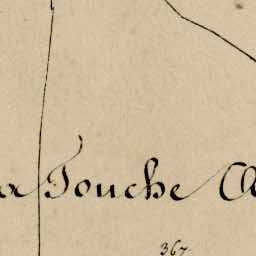 a Touche
367